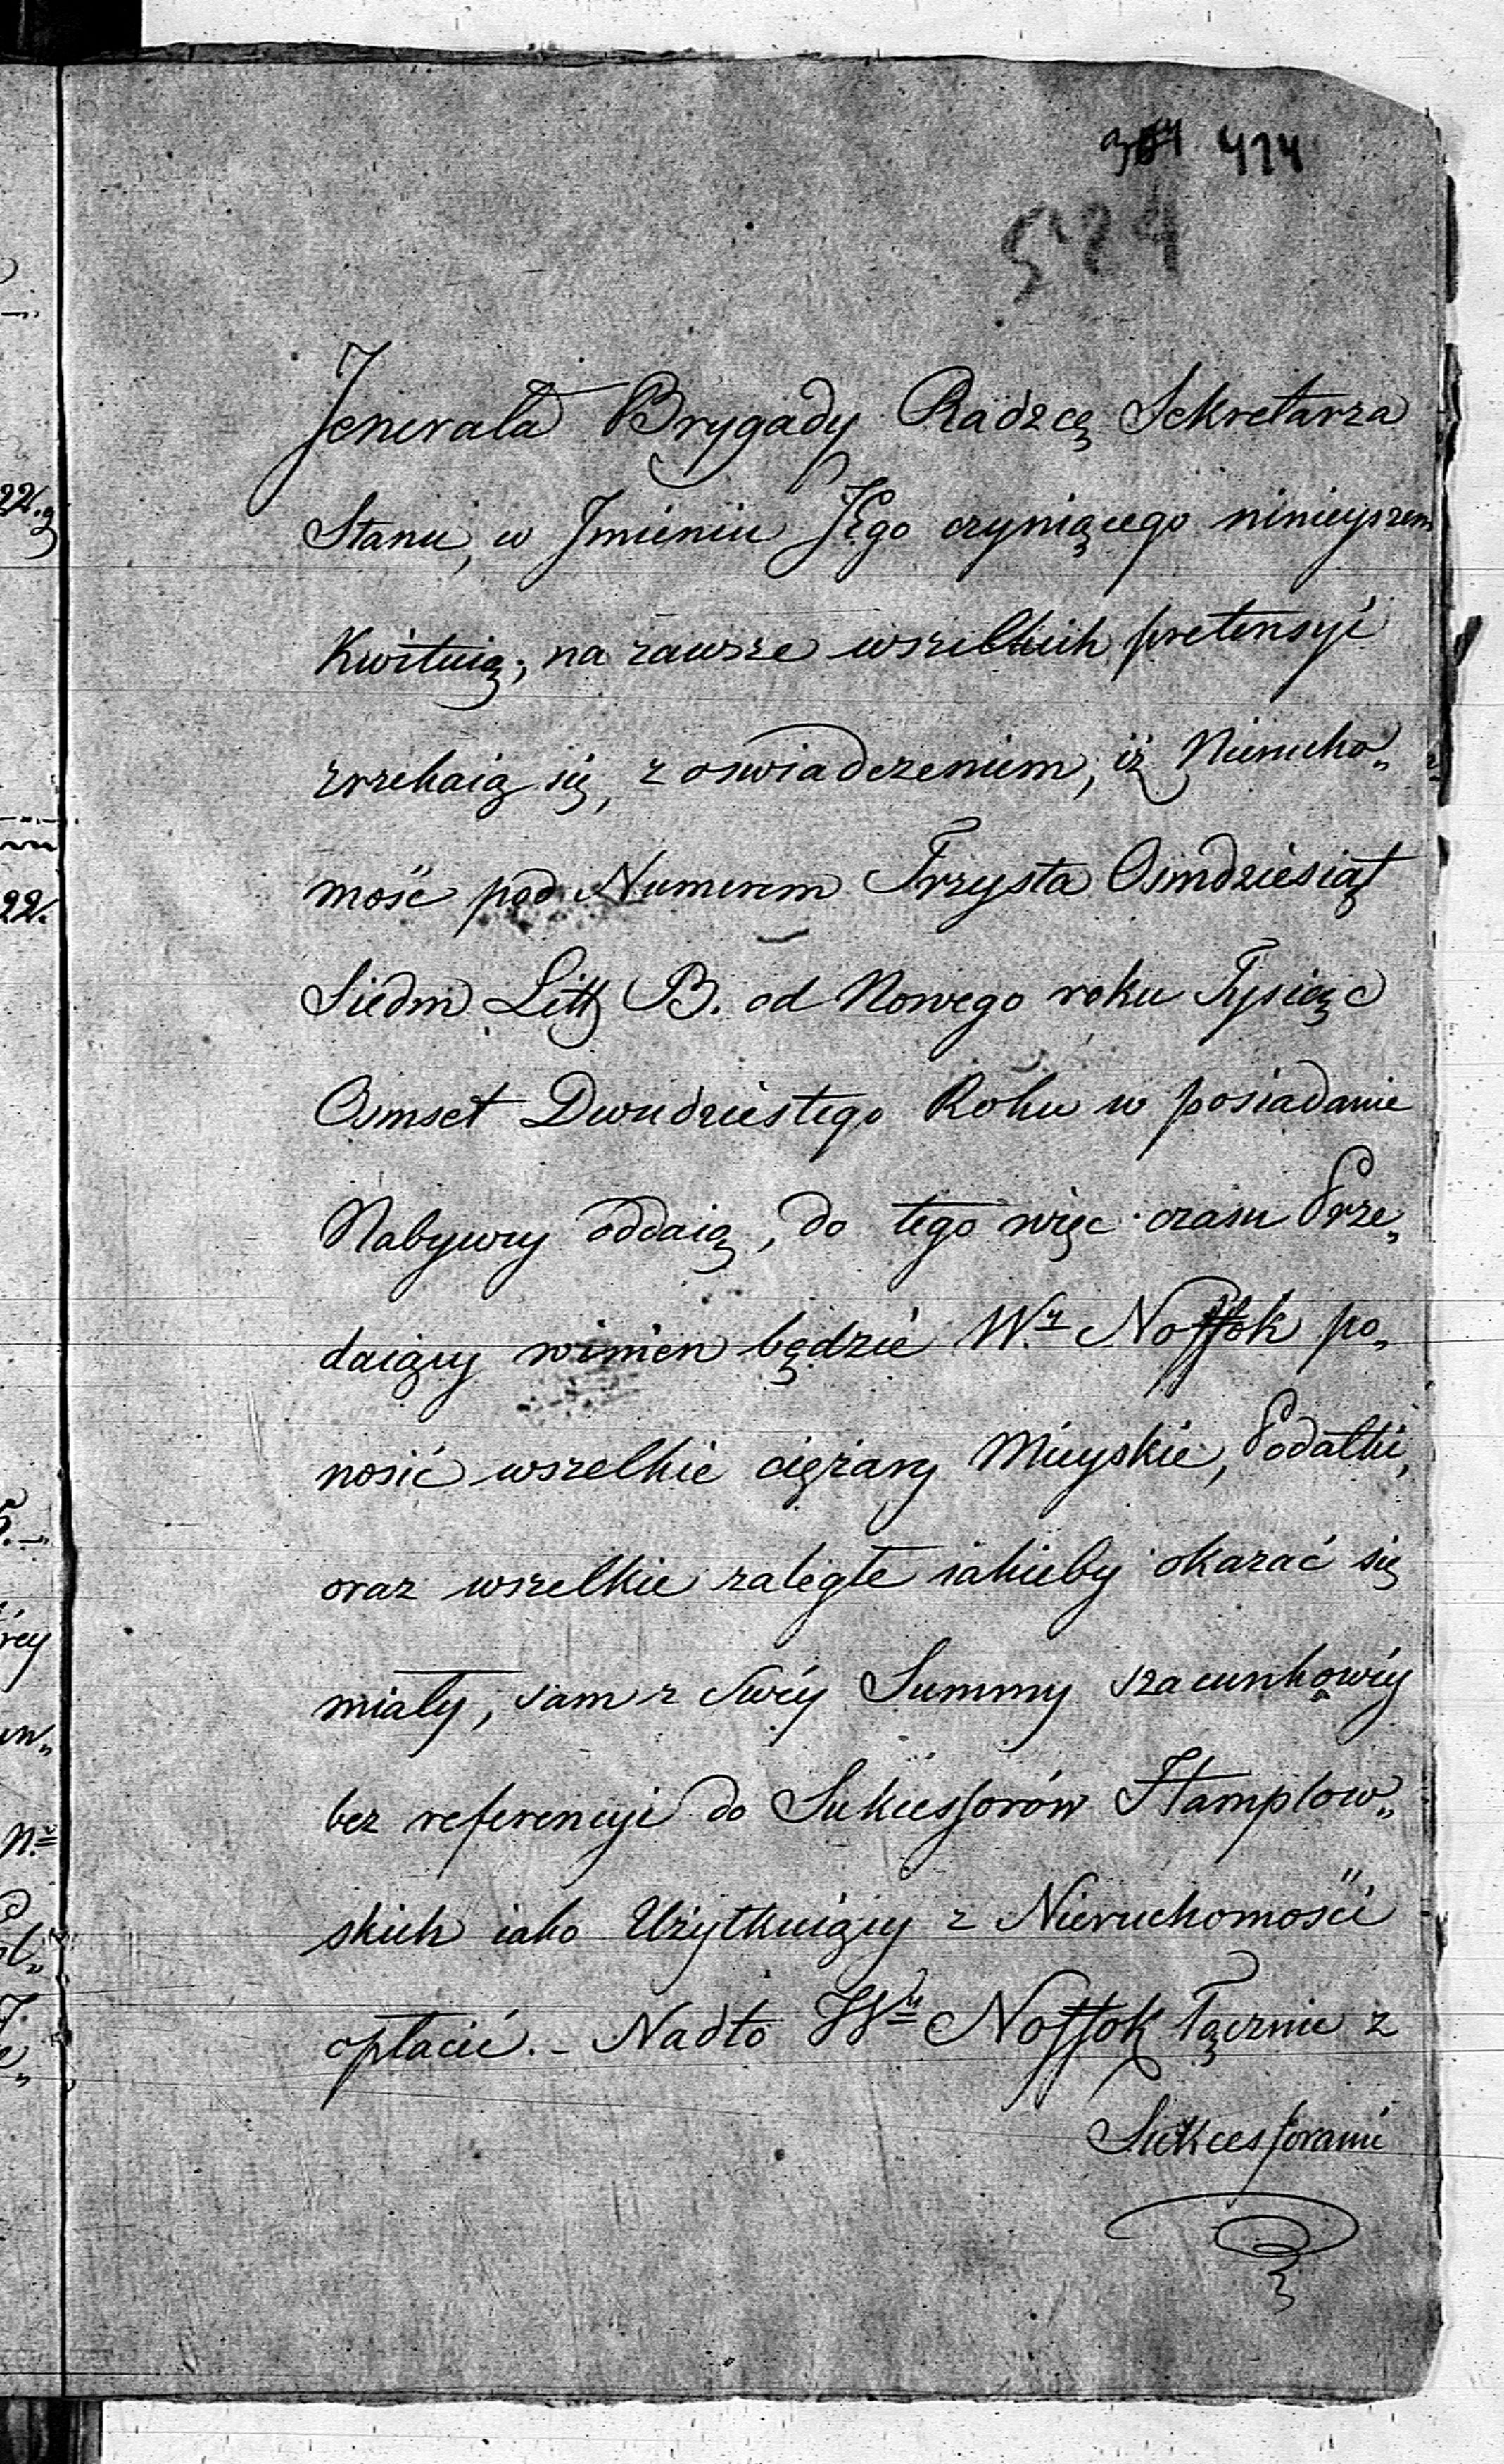 414
524
Jenerała Brygady Radzcę Sekretarza
Stanu, w Jmieniu JEgo czyniącego ninieyszem
Kwituią; na zawsze wszelkich pretensyi
zrzekaią się, z oswiadczeniem, iż Nierucho„
mość pod Numerem Trzysta Osmdziesiąt
Siedm Litt B. od Nowego roku Tysiąc
Osmset Dwudziestego Roku w posiadanie
Nabywcy oddaią, do tego więc czasu Prze„
daiący winien będzie Wy Noffok po„
nosić wszelkie ciężary Mieyskie, Podatki,
oraz wszelkie zaległe iakieby okazać się
miały, sam z Swéy Summy szacunkowéy
bez referencyi do Sukcessorów Htamplow„
skich iako Użytkuiący z Nieruchomości
opłacić. _ Nadto Wy Noffok łącznie z
Sukcessorami